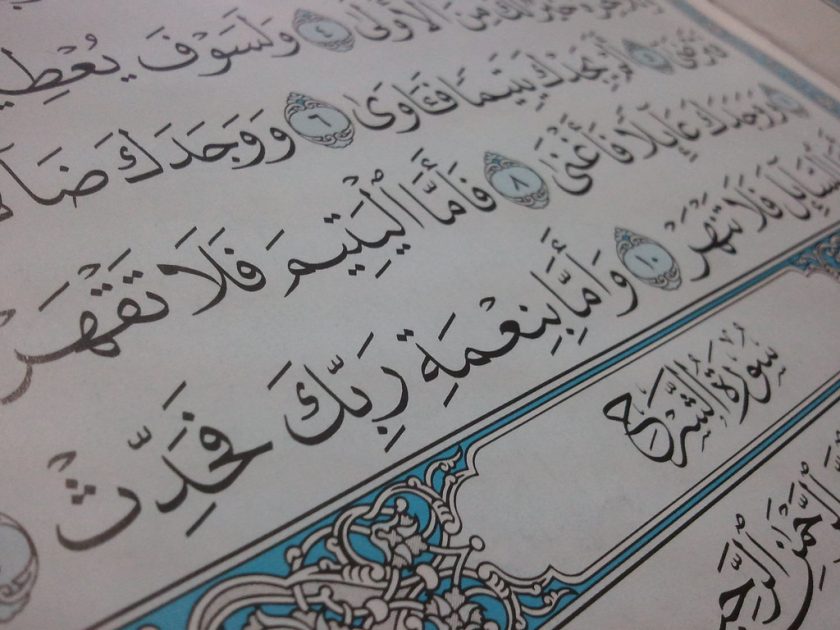 خَيْرٌ لَّكَ مِنَ ٱلْأُولَىٰ ٤ وَلَسَوْفَ
أَلَمْ يَجِدْكَ يَتِيمًا فَـَٔاوَىٰ ٦ وَوَجَدَكَ
وَوَجَدَكَ عَآئِلًا فَأَغْنَىٰ ٨ فَأَمَّا ٱلْيَتِيمَ فَلَا تَقْهَرْ
ٱلسَّآئِلَ فَلَا تَنْهَرْ ١٠ وَأَمَّا بِنِعْمَةِ رَبِّكَ فَحَدِّثْ
سُورَةُ الشَّرْحِ
ٱلرَّحْمَٰنِ